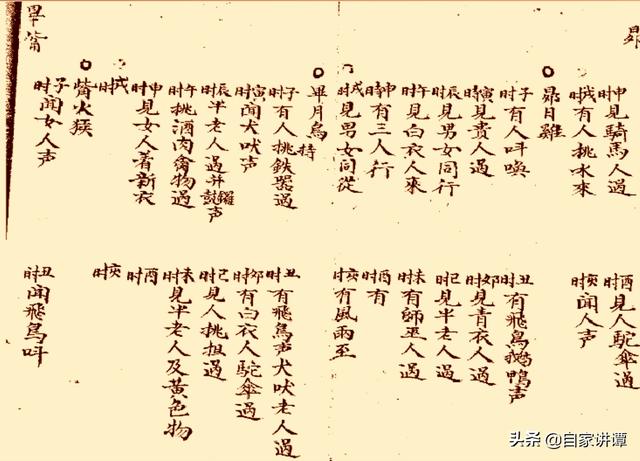 昴
申时見騎馬人過
酉时見人駝傘過
戌时有人挑水來
亥时聞人声
昴日雞
子时有人呌喚
丑时有飛鳥鵝鴨声
寅时見貴人過
卯时見青衣人過
辰时見男女同行
巳时見半老人過
午时見白衣人來
未时有師巫人過
申时有三人行
酉时有
戌时見男女同從
亥时有風雨至
畢月烏
子时有人挑鉄器過
丑时有飛鳥声犬吠老人過
寅时聞犬吠声
卯时有白衣人駝傘過
辰时半老人過并鑼鼓声
巳时見人挑担過
午时挑酒肉禽物過
未时見半老人及黄色物
申时見女人着新衣
酉时
戌时
亥时
觜火猴
子时聞女人声
丑时聞飛鳥呌
畢觜
头条 @自家讲谭